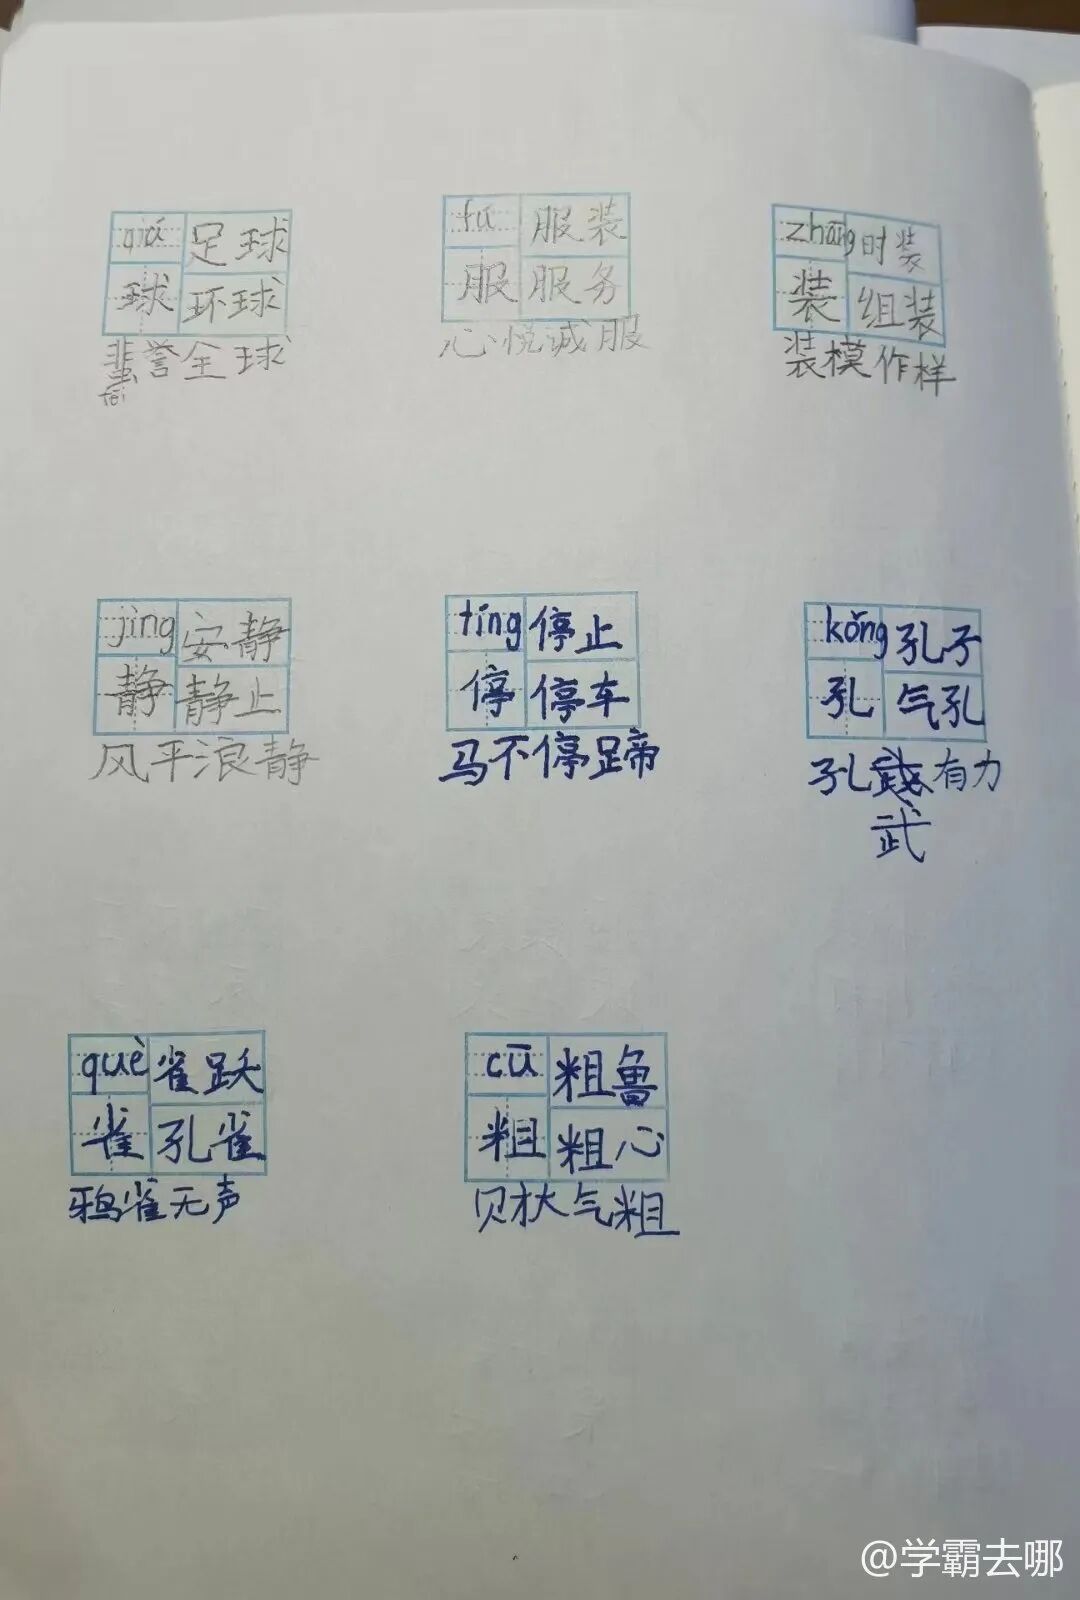 qiú 足球
球 环球
蜚誉全球
fēi
fú 服装
服 服务
心悦诚服
zhāng 时装
装 组装
装模作样
jìng 安静
静 静止
风平浪静
tíng 停止
停 停车
马不停蹄
kǒng 孔子
孔 气孔
孔 有力
武
què 雀跃
雀 孔雀
鸦雀无声
cū 粗鲁
粗 粗心
财大气粗
@学霸去哪